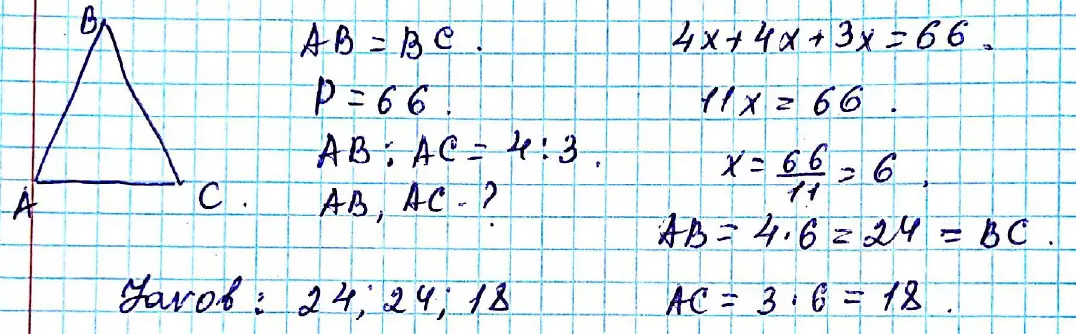 B
A
C.
AB = BC.
P = 66.
AB : AC = 4 : 3.
AB, AC - ?
4x + 4x + 3x = 66.
11x = 66.
x = 66/11 = 6,
AB = 4 · 6 = 24 = BC.
AC = 3 · 6 = 18.
: 24; 24; 18